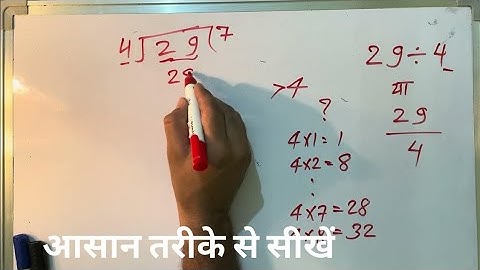 4)29(7
28
>4
?
4×1=1
4×2=8
4×7=28
4×8=32
29÷4
या
29
4
आसान तरीके से सीखें